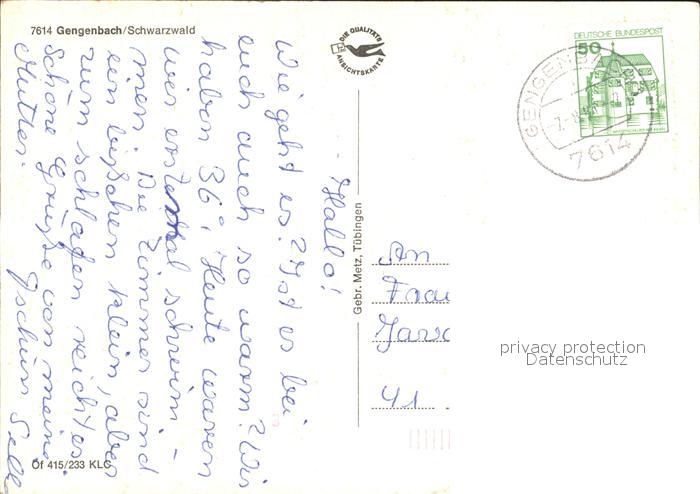 7614 Gengenbach/Schwarzwald
DIE QUALITÄTS
ANSICHTSKARTE
DEUTSCHE BUNDESPOST
50
GENGENB
7614
Hallo!
Wie geht es? Ist es bei
euch auch so warm? Wir
haben 36°. Heute waren
wir erstmal schwim-
men. Die Zimmer sind
ein bißchen klein, aber
zum schlafen reicht es.
Schöne Grüße von meine
Mutter.
Tschüß
Gebr. Metz, Tübingen
An
Frau
41
privacy protection
Datenschutz
Of 415/233 KLC